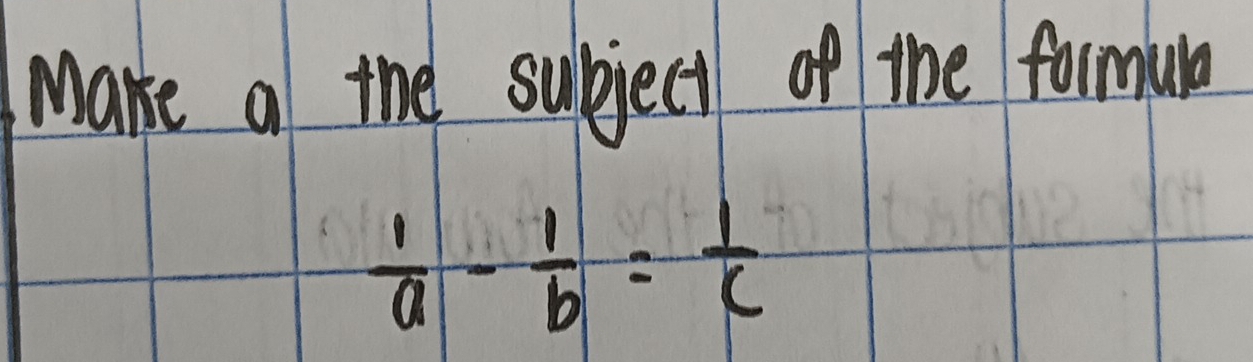 Make a the subject of the formula
1/a - 1/b = 1/c